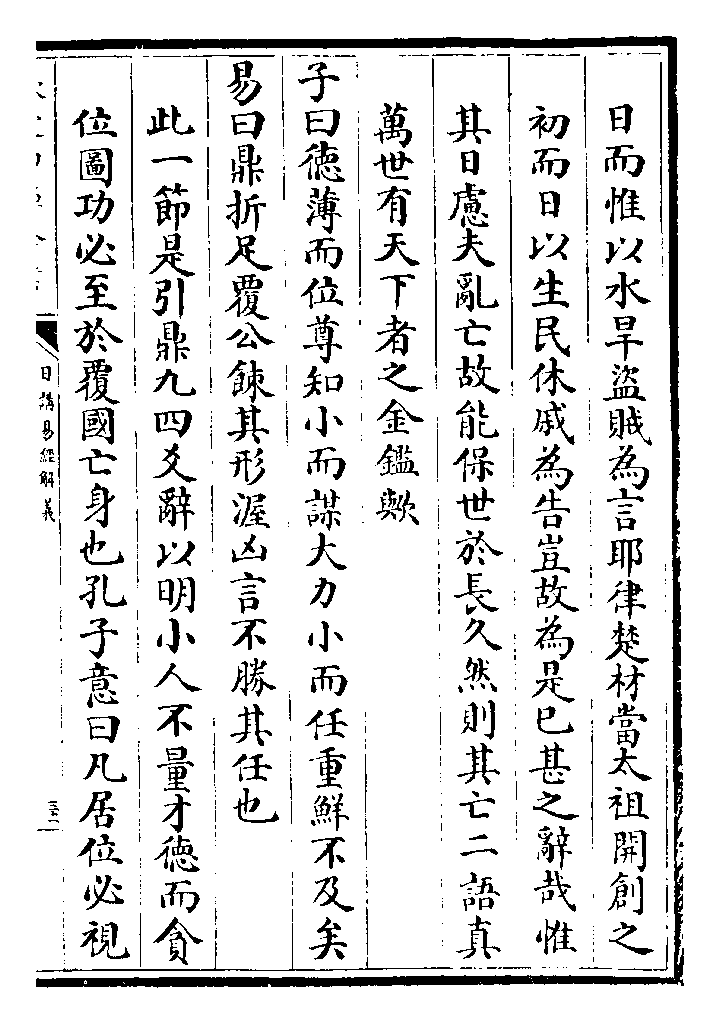 日而惟以水旱盜賊為言耶律楚材當太祖開創之
初而日以生民休戚為告豈故為是已甚之辭哉惟
其日慮夫亂亡故能保世於長久然則其亡二語真
萬世有天下者之金鑑歟
子曰徳薄而位尊知小而謀大力小而任重鮮不及矣
易曰鼎折足覆公餗其形渥凶言不勝其任也
此一節是引鼎九四爻辭以明小人不量才徳而貪
位圖功必至於覆國亡身也孔子意曰凡居位必視
日講易經解義